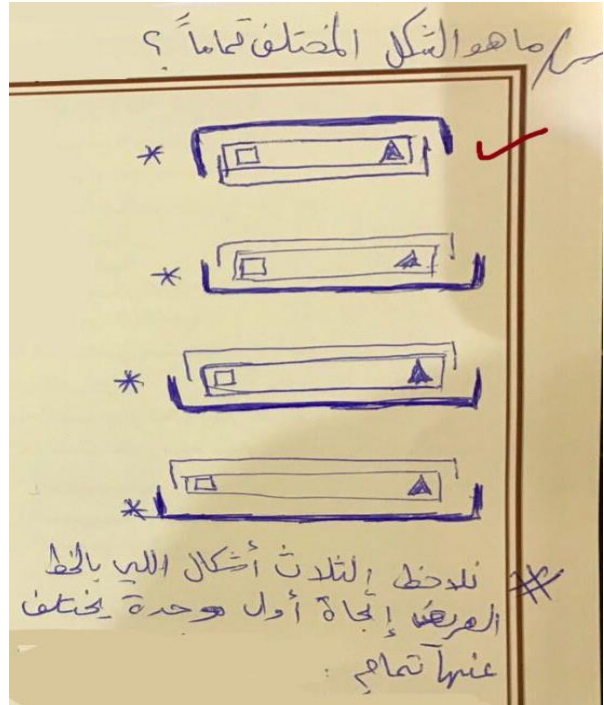 س/ ما هو الشكل المختلف تماماً ؟
*
*
*
*
* نلاحظ الثلاث أشكال اللي بالخط
العريض إتجاة أول وحدة يختلف
عنها تمام .